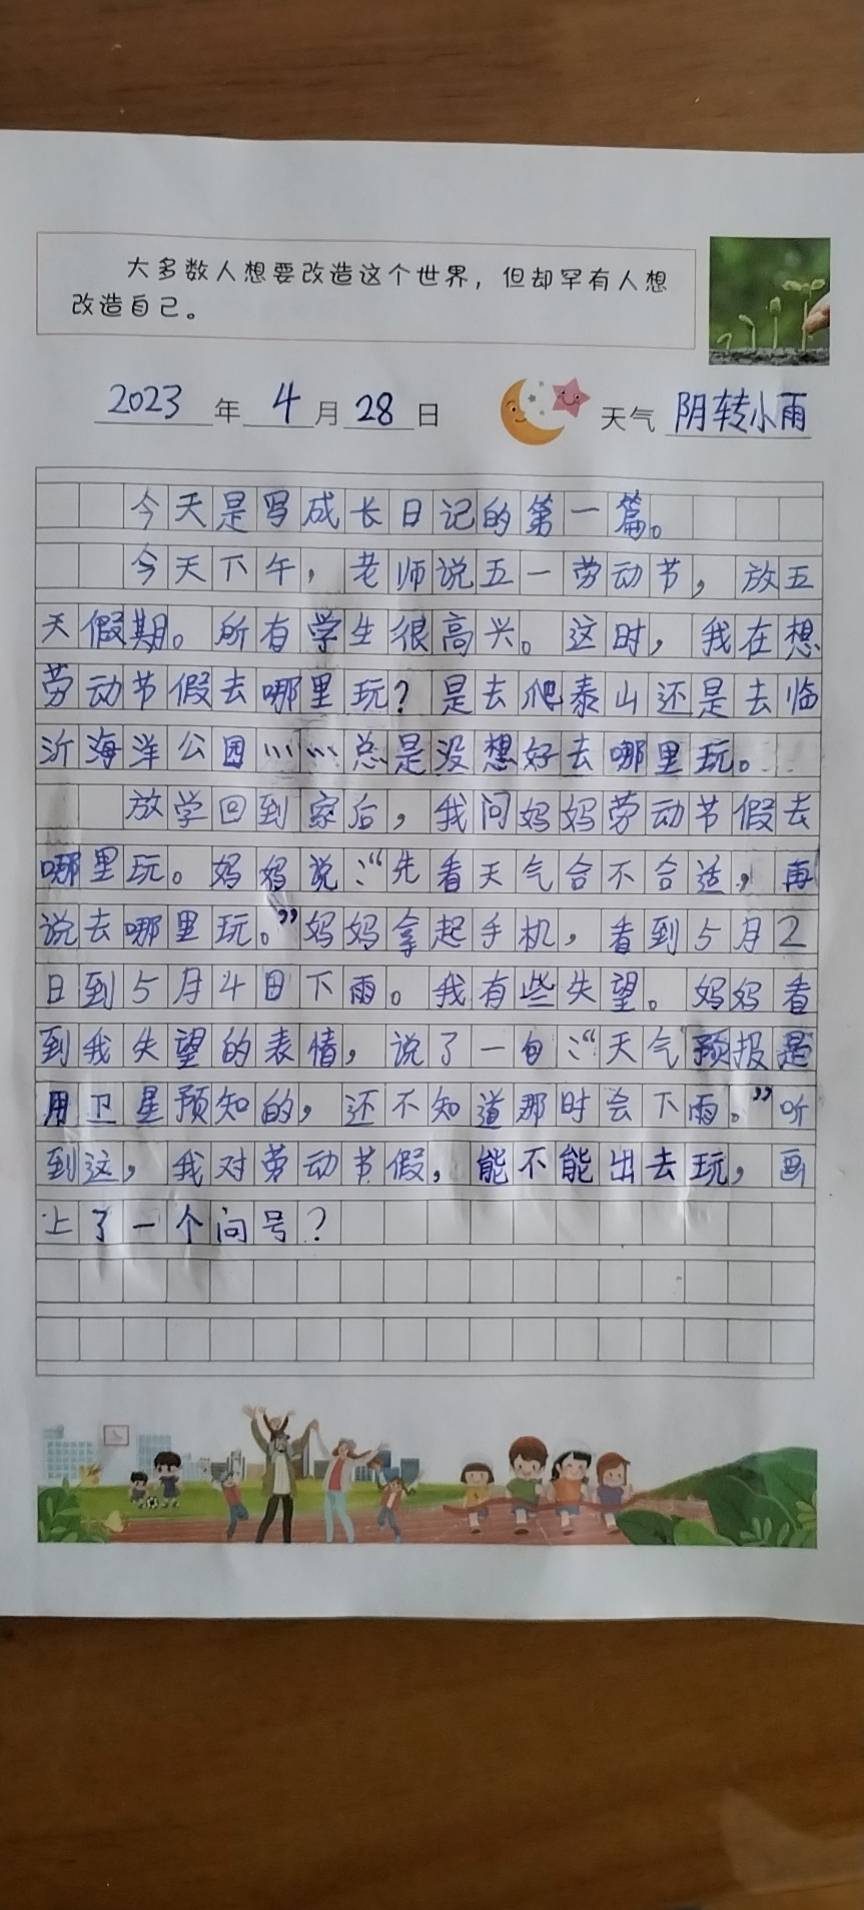 大多数人想要改造这个世界，但却罕有人想
改造自己。
2023年4月28日 天气 阴转小雨
今天是写成长日记的第一篇。
今天下午，老师说五一劳动节，放五
天假期。所有学生很高兴。这时，我在想
劳动节假去哪里玩？是去爬泰山还是去临
沂海洋公园……总是没想好去哪里玩。
放学回到家后，我问妈妈劳动节假去
哪里玩。妈妈说：“先看天气合不合适，再
说去哪里玩。”妈妈拿起手机，看到5月2
日到5月4日下雨。我有些失望。妈妈看
到我失望的表情，说了一句：“天气预报是
用卫星预知的，还不知道那时会下雨。”听
到这，我对劳动节假，能不能出去玩，画
上了一个问号？